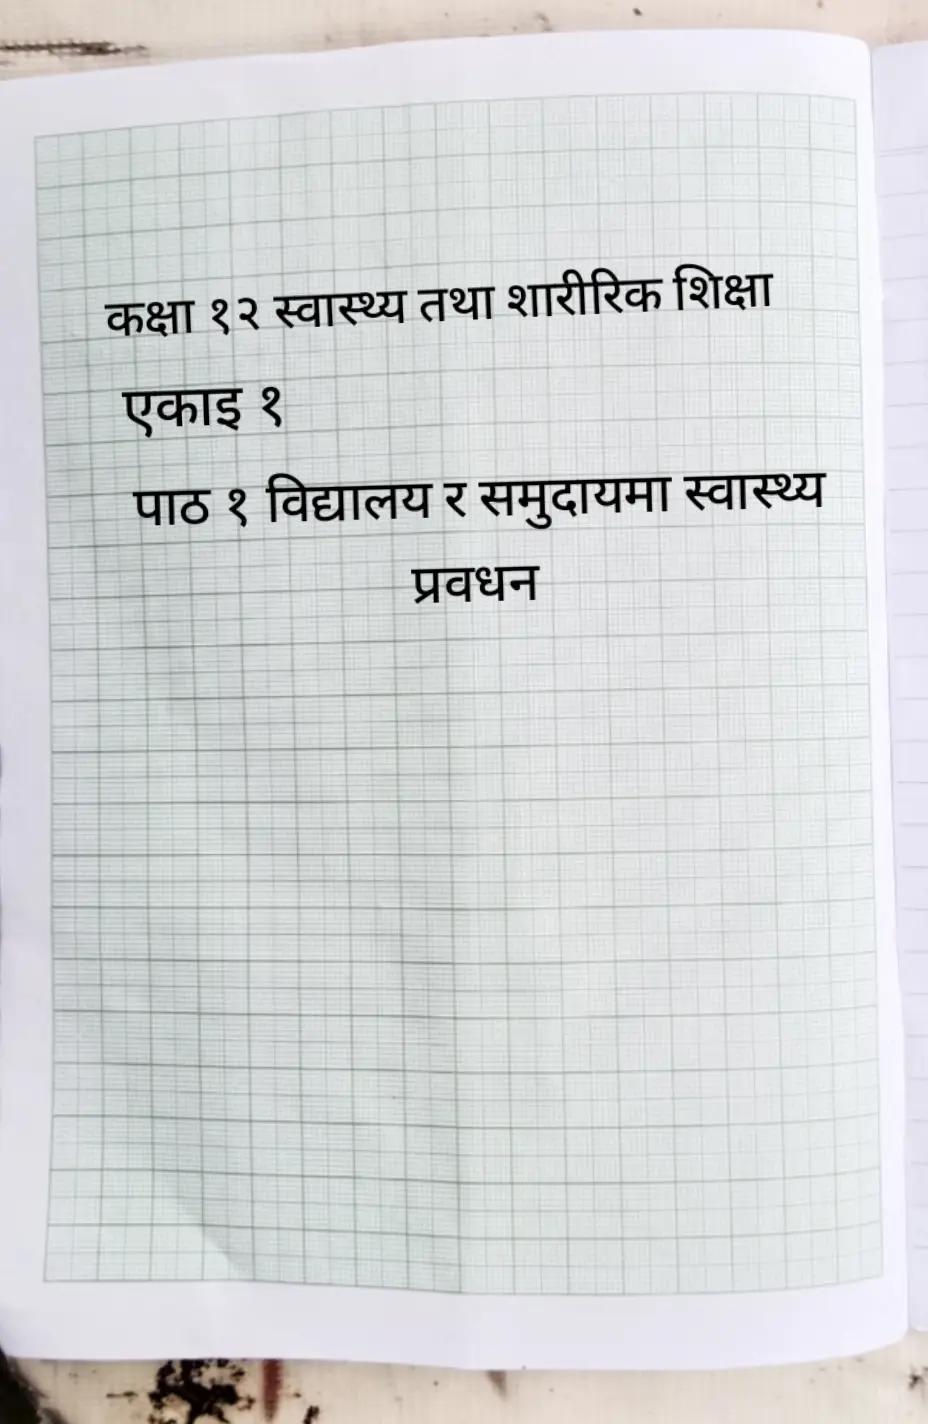 कक्षा १२ स्वास्थ्य तथा शारीरिक शिक्षा
एकाइ १
पाठ १ विद्यालय र समुदायमा स्वास्थ्य
प्रवधन